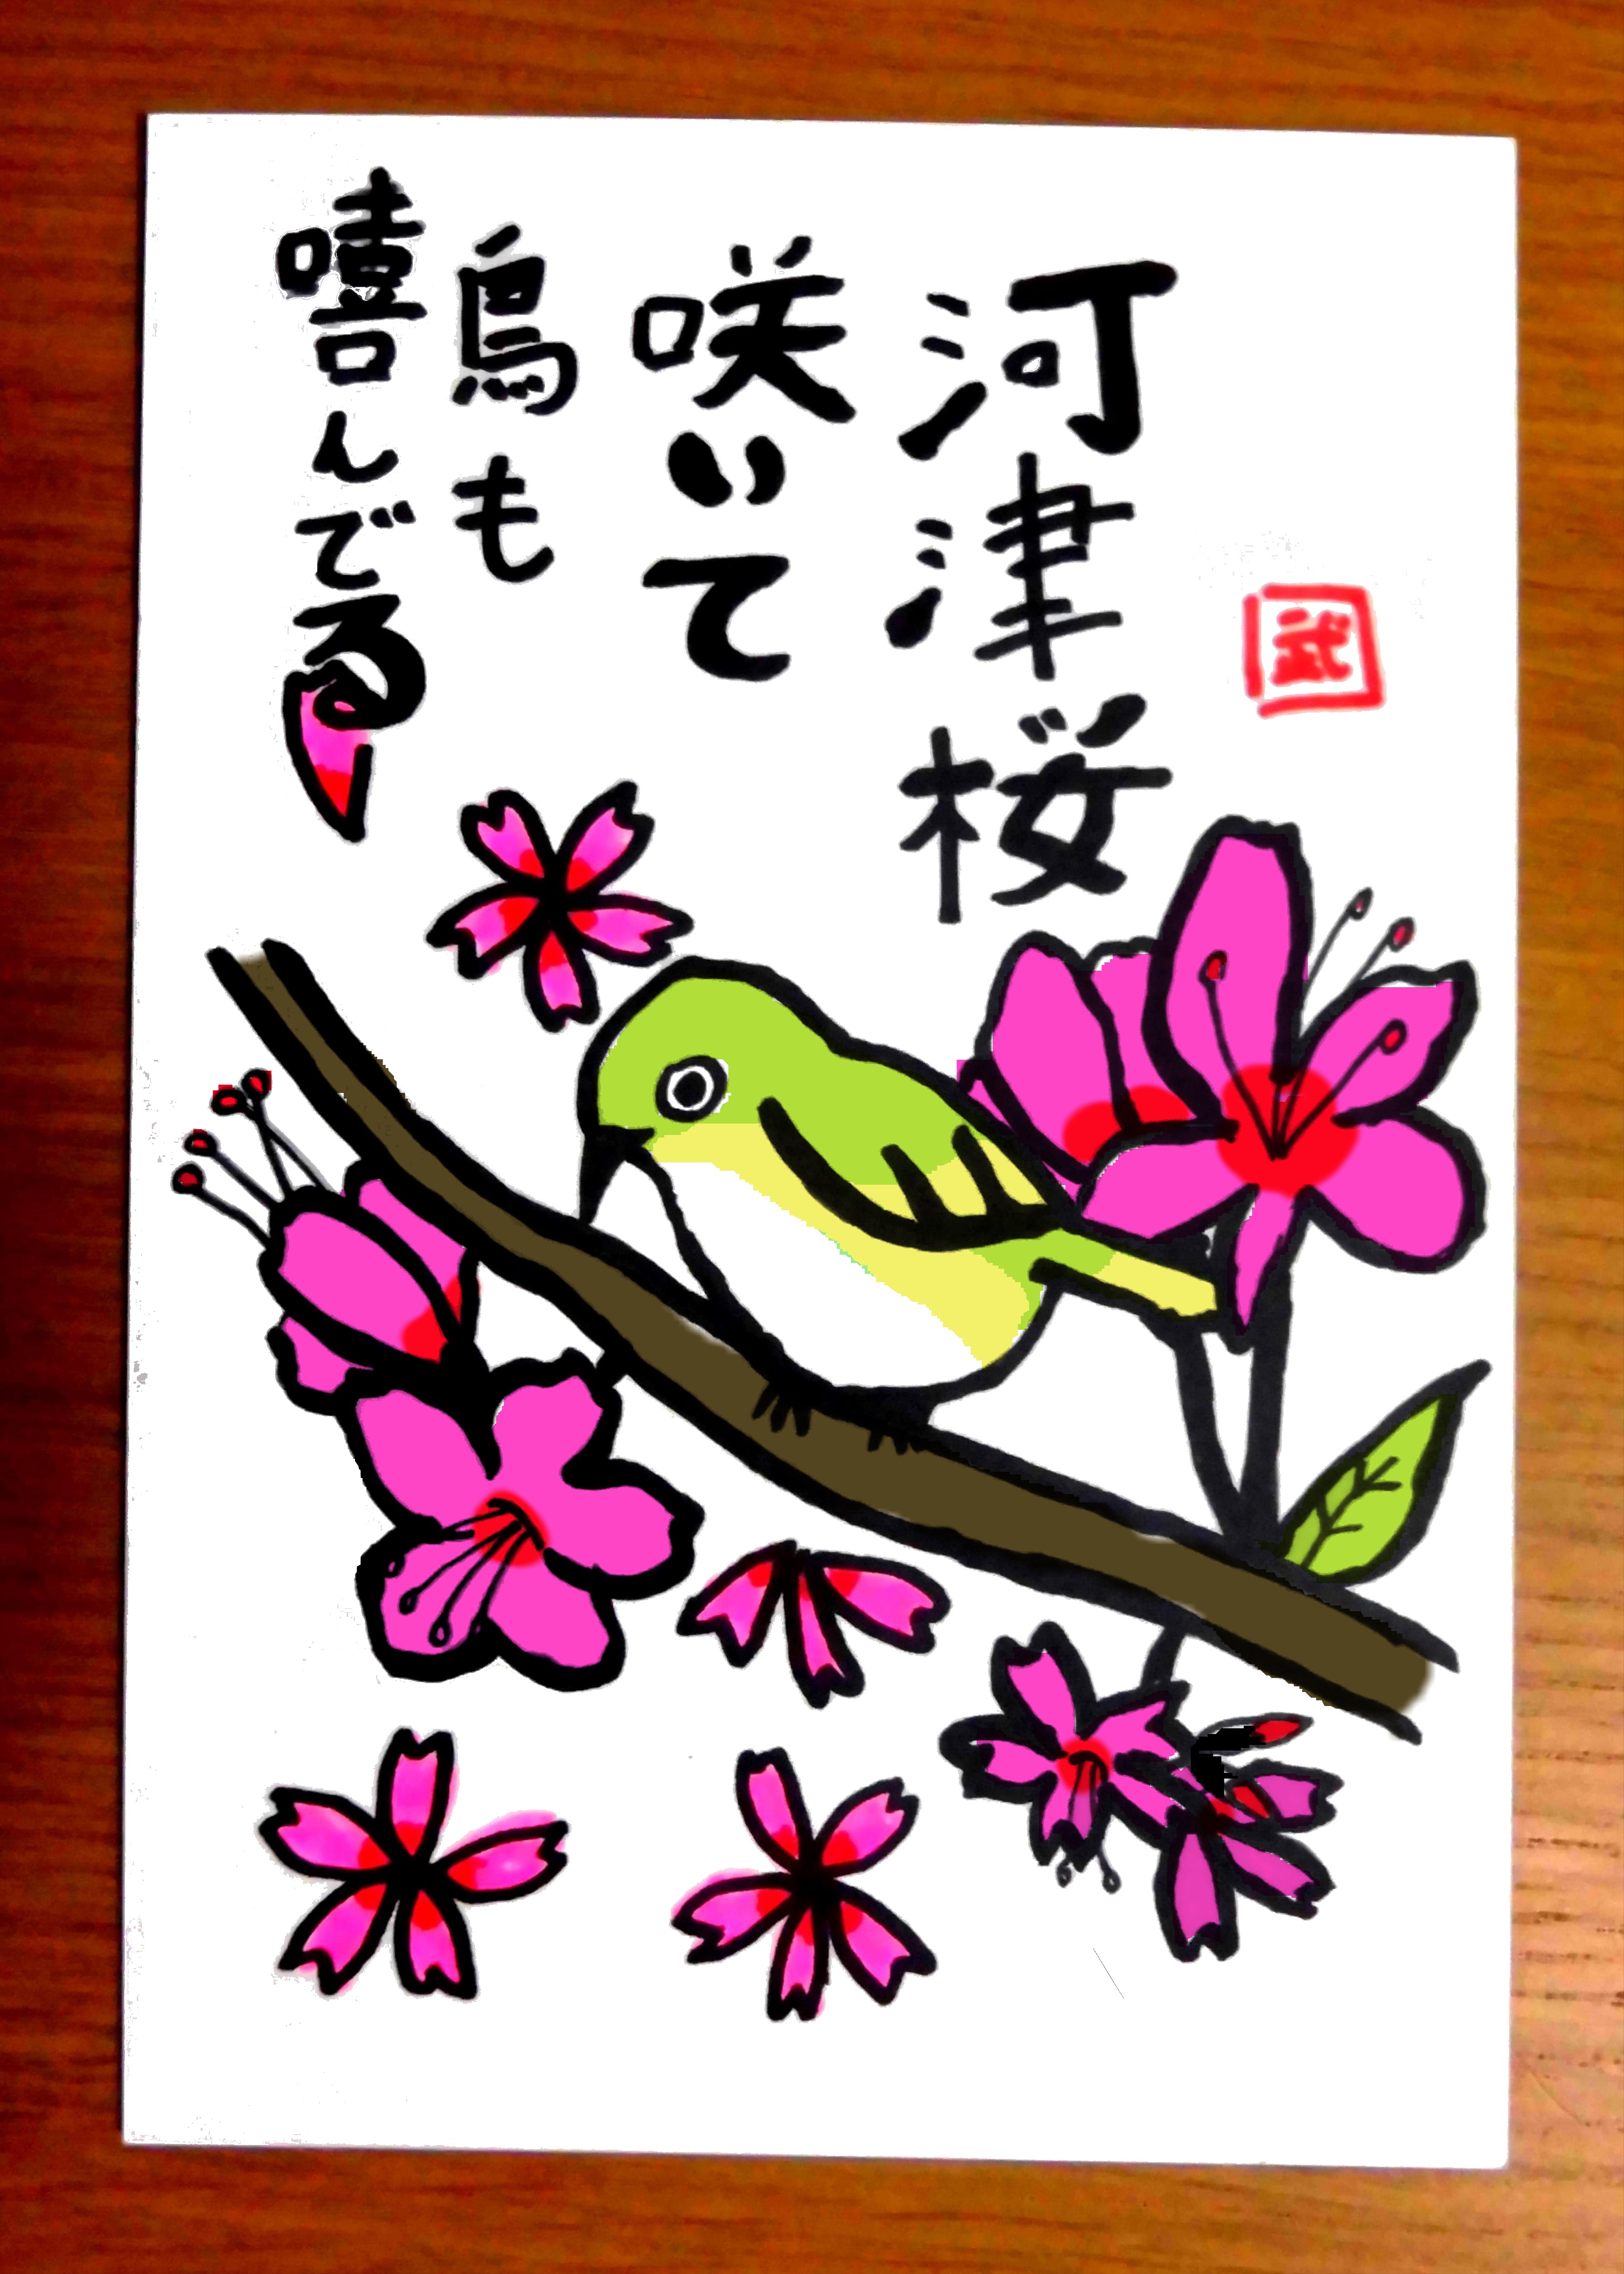 武
河津桜
咲いて
鳥も
嘻んでる